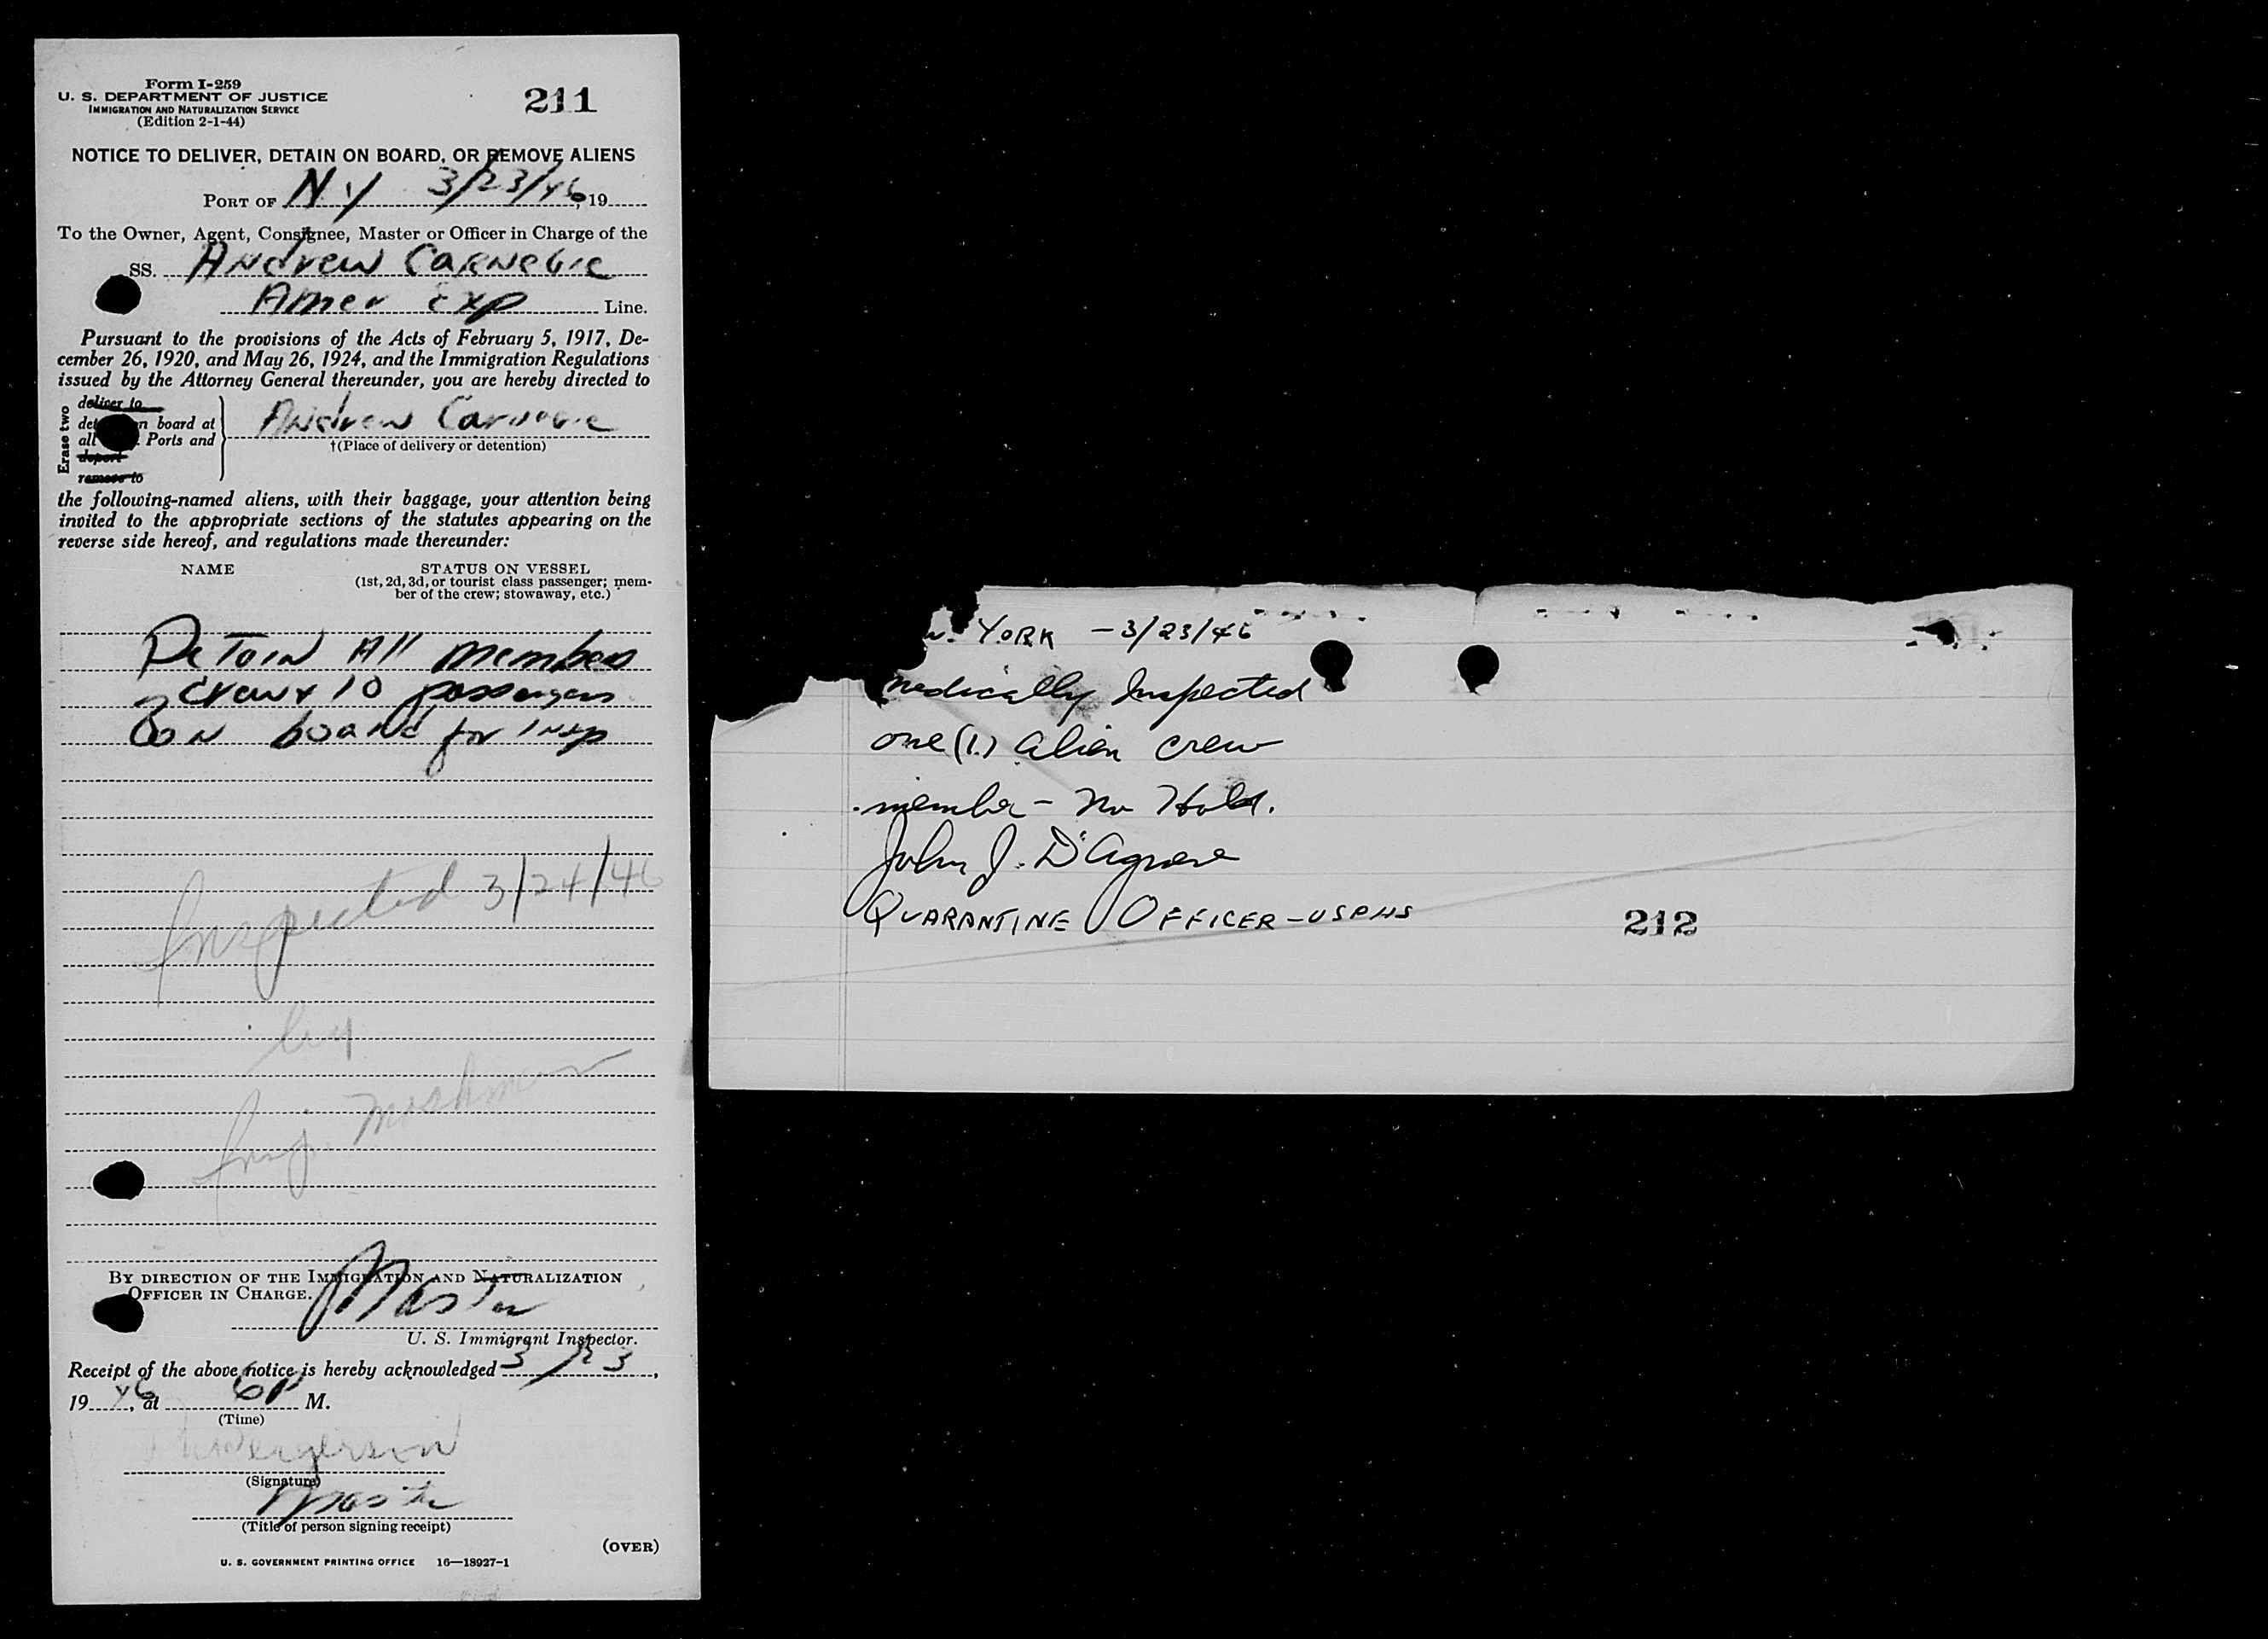 Form I-259
U. S. DEPARTMENT OF JUSTICE
IMMIGRATION AND NATURALIZATION SERVICE
(Edition 2-1-44)
211
NOTICE TO DELIVER, DETAIN ON BOARD, OR REMOVE ALIENS
PORT OF N.Y 3/23/46, 19
To the Owner, Agent, Consignee, Master or Officer in Charge of the
SS. Andrew Carnegie
Amer Exp Line.
Pursuant to the provisions of the Acts of February 5, 1917, De-
cember 26, 1920, and May 26, 1924, and the Immigration Regulations
issued by the Attorney General thereunder, you are hereby directed to
Erase two
deliver to
board at
all Ports and
deport
remove to
Andrew Carnegie
†(Place of delivery or detention)
the following-named aliens, with their baggage, your attention being
invited to the appropriate sections of the statutes appearing on the
reverse side hereof, and regulations made thereunder:
NAME
STATUS ON VESSEL
(1st, 2d, 3d, or tourist class passenger; mem-
ber of the crew; stowaway, etc.)
Detain All members
crew + 10 passengers
on board for insp
Inspected 3/24/46
by
BY DIRECTION OF THE IMMIGRATION AND NATURALIZATION
OFFICER IN CHARGE.
U. S. Immigrant Inspector.
Receipt of the above notice is hereby acknowledged 3/23,
1946, at 6P M.
(Time)
(Signature)
Master
(Title of person signing receipt)
(OVER)
U. S. GOVERNMENT PRINTING OFFICE 16—18927-1
w. YORK - 3/23/46
medically Inspected
one (1.) alien crew
member - No Hold.
John J. D'Agnese
QUARANTINE OFFICER - USPHS
212